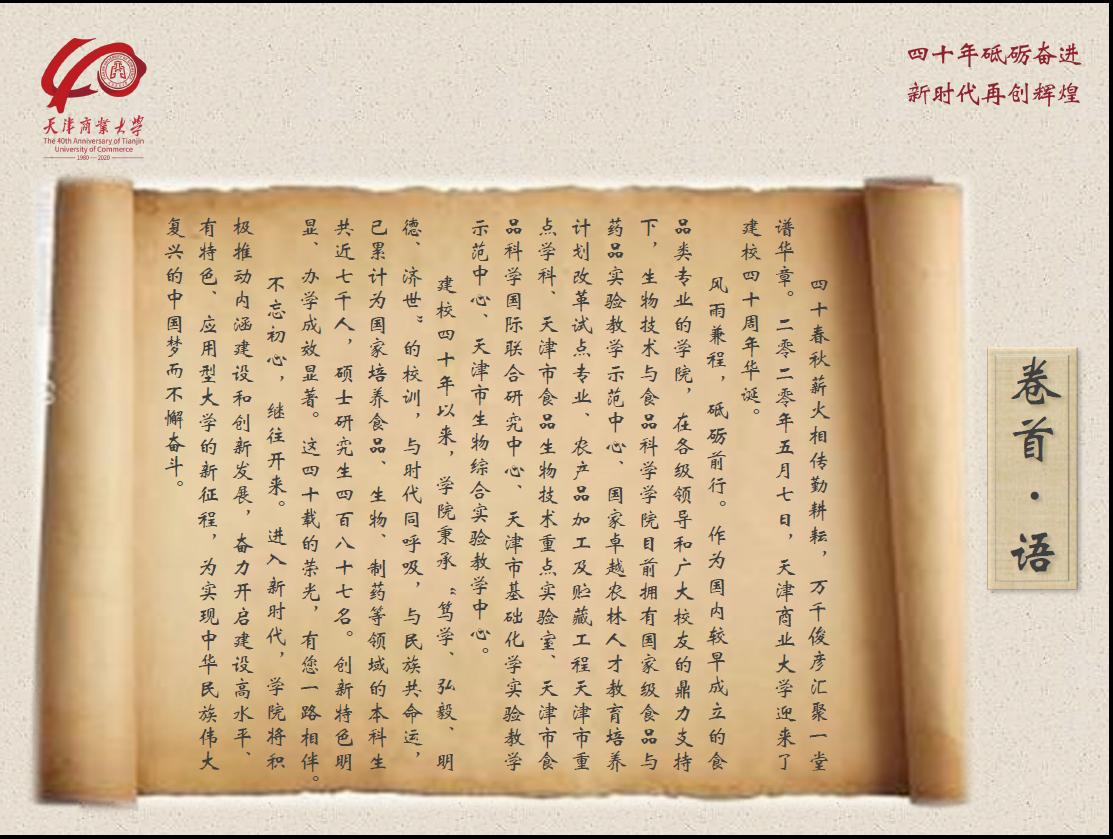 天津商業大學
The 40th Anniversary of Tianjin
University of Commerce
1980 — 2020
四十年砥砺奋进
新时代再创辉煌
卷首·语
四十春秋薪火相传勤耕耘，万千俊彦汇聚一堂
谱华章。二零二零年五月七日，天津商业大学迎来了
建校四十周年华诞。
风雨兼程，砥砺前行。作为国内较早成立的食
品类专业的学院，在各级领导和广大校友的鼎力支持
下，生物技术与食品科学学院目前拥有国家级食品与
药品实验教学示范中心、国家卓越农林人才教育培养
计划改革试点专业、农产品加工及贮藏工程天津市重
点学科、天津市食品生物技术重点实验室、天津市食
品科学国际联合研究中心、天津市基础化学实验教学
示范中心、天津市生物综合实验教学中心。
建校四十年以来，学院秉承“笃学、弘毅、明
德、济世”的校训，与时代同呼吸，与民族共命运，
已累计为国家培养食品、生物、制药等领域的本科生
共近七千人，硕士研究生四百八十七名。创新特色明
显、办学成效显著。这四十载的荣光，有您一路相伴。
不忘初心，继往开来。进入新时代，学院将积
极推动内涵建设和创新发展，奋力开启建设高水平、
有特色、应用型大学的新征程，为实现中华民族伟大
复兴的中国梦而不懈奋斗。